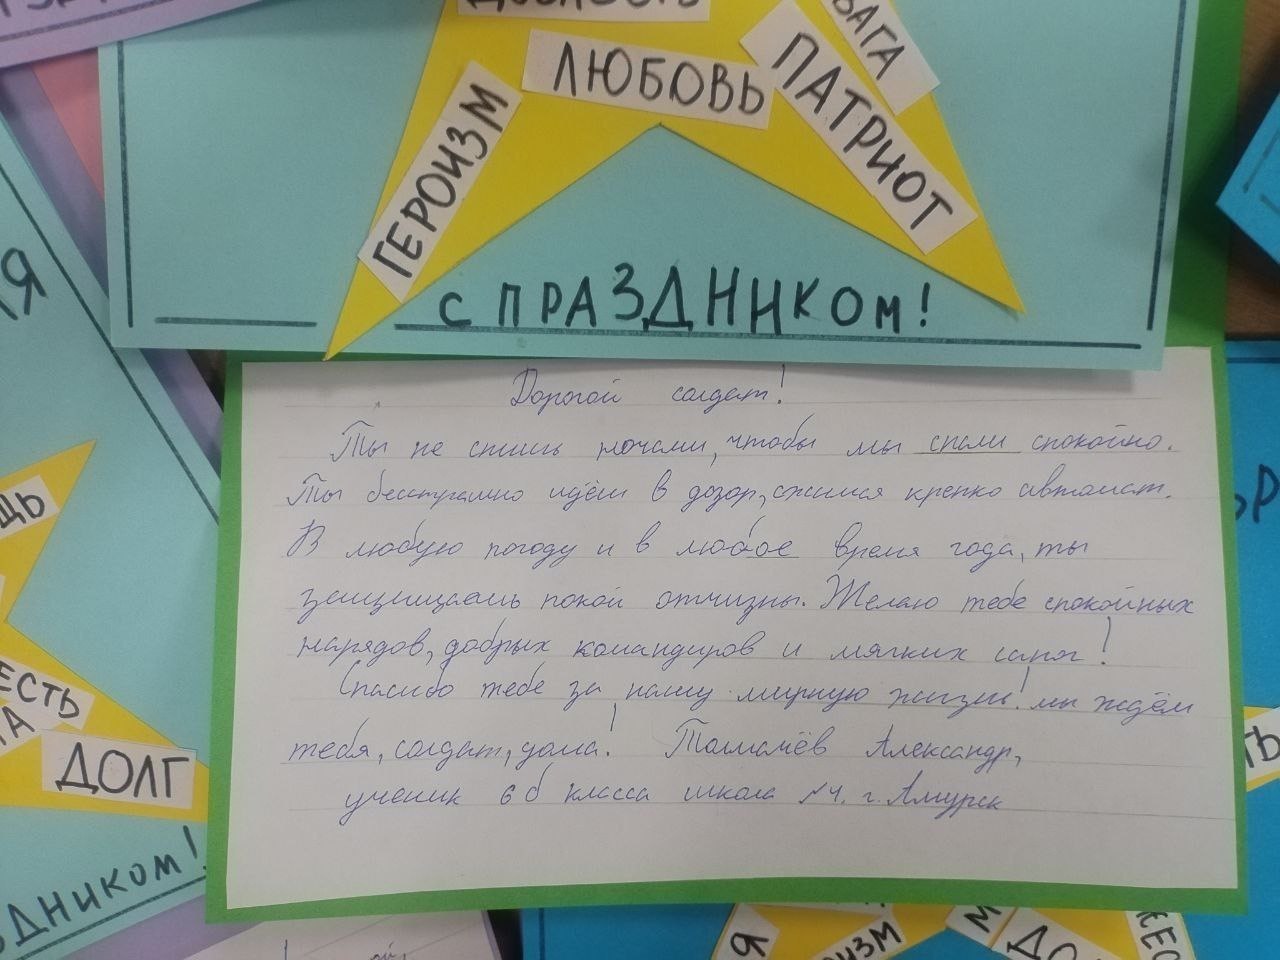 ДОБЛЕСТЬ
ВАГА
ЛЮБОВЬ
ПАТРИОТ
ГЕРОИЗМ
С ПРАЗДНИКОМ!
Дорогой солдат!
Ты не спишь ночами, чтобы мы спали спокойно.
Ты бесстрашно идёш в дозор, сжимая крепко автомат.
В любую погоду и в любое время года, ты
защищаешь покой отчизны. Желаю тебе спокойных
нарядов, добрых командиров и мягких сапог!
Спасибо тебе за нашу мирную жизнь! мы ждём
тебя, солдат, дома! Толмачёв Александр,
ученик 6 б класса школа №4. г. Амурск
Я
ЩЬ
ЕСТЬ
ДОЛГ
ЗДНИКОМ!
ТЬ
Я
ОИЗМ
М
ДО